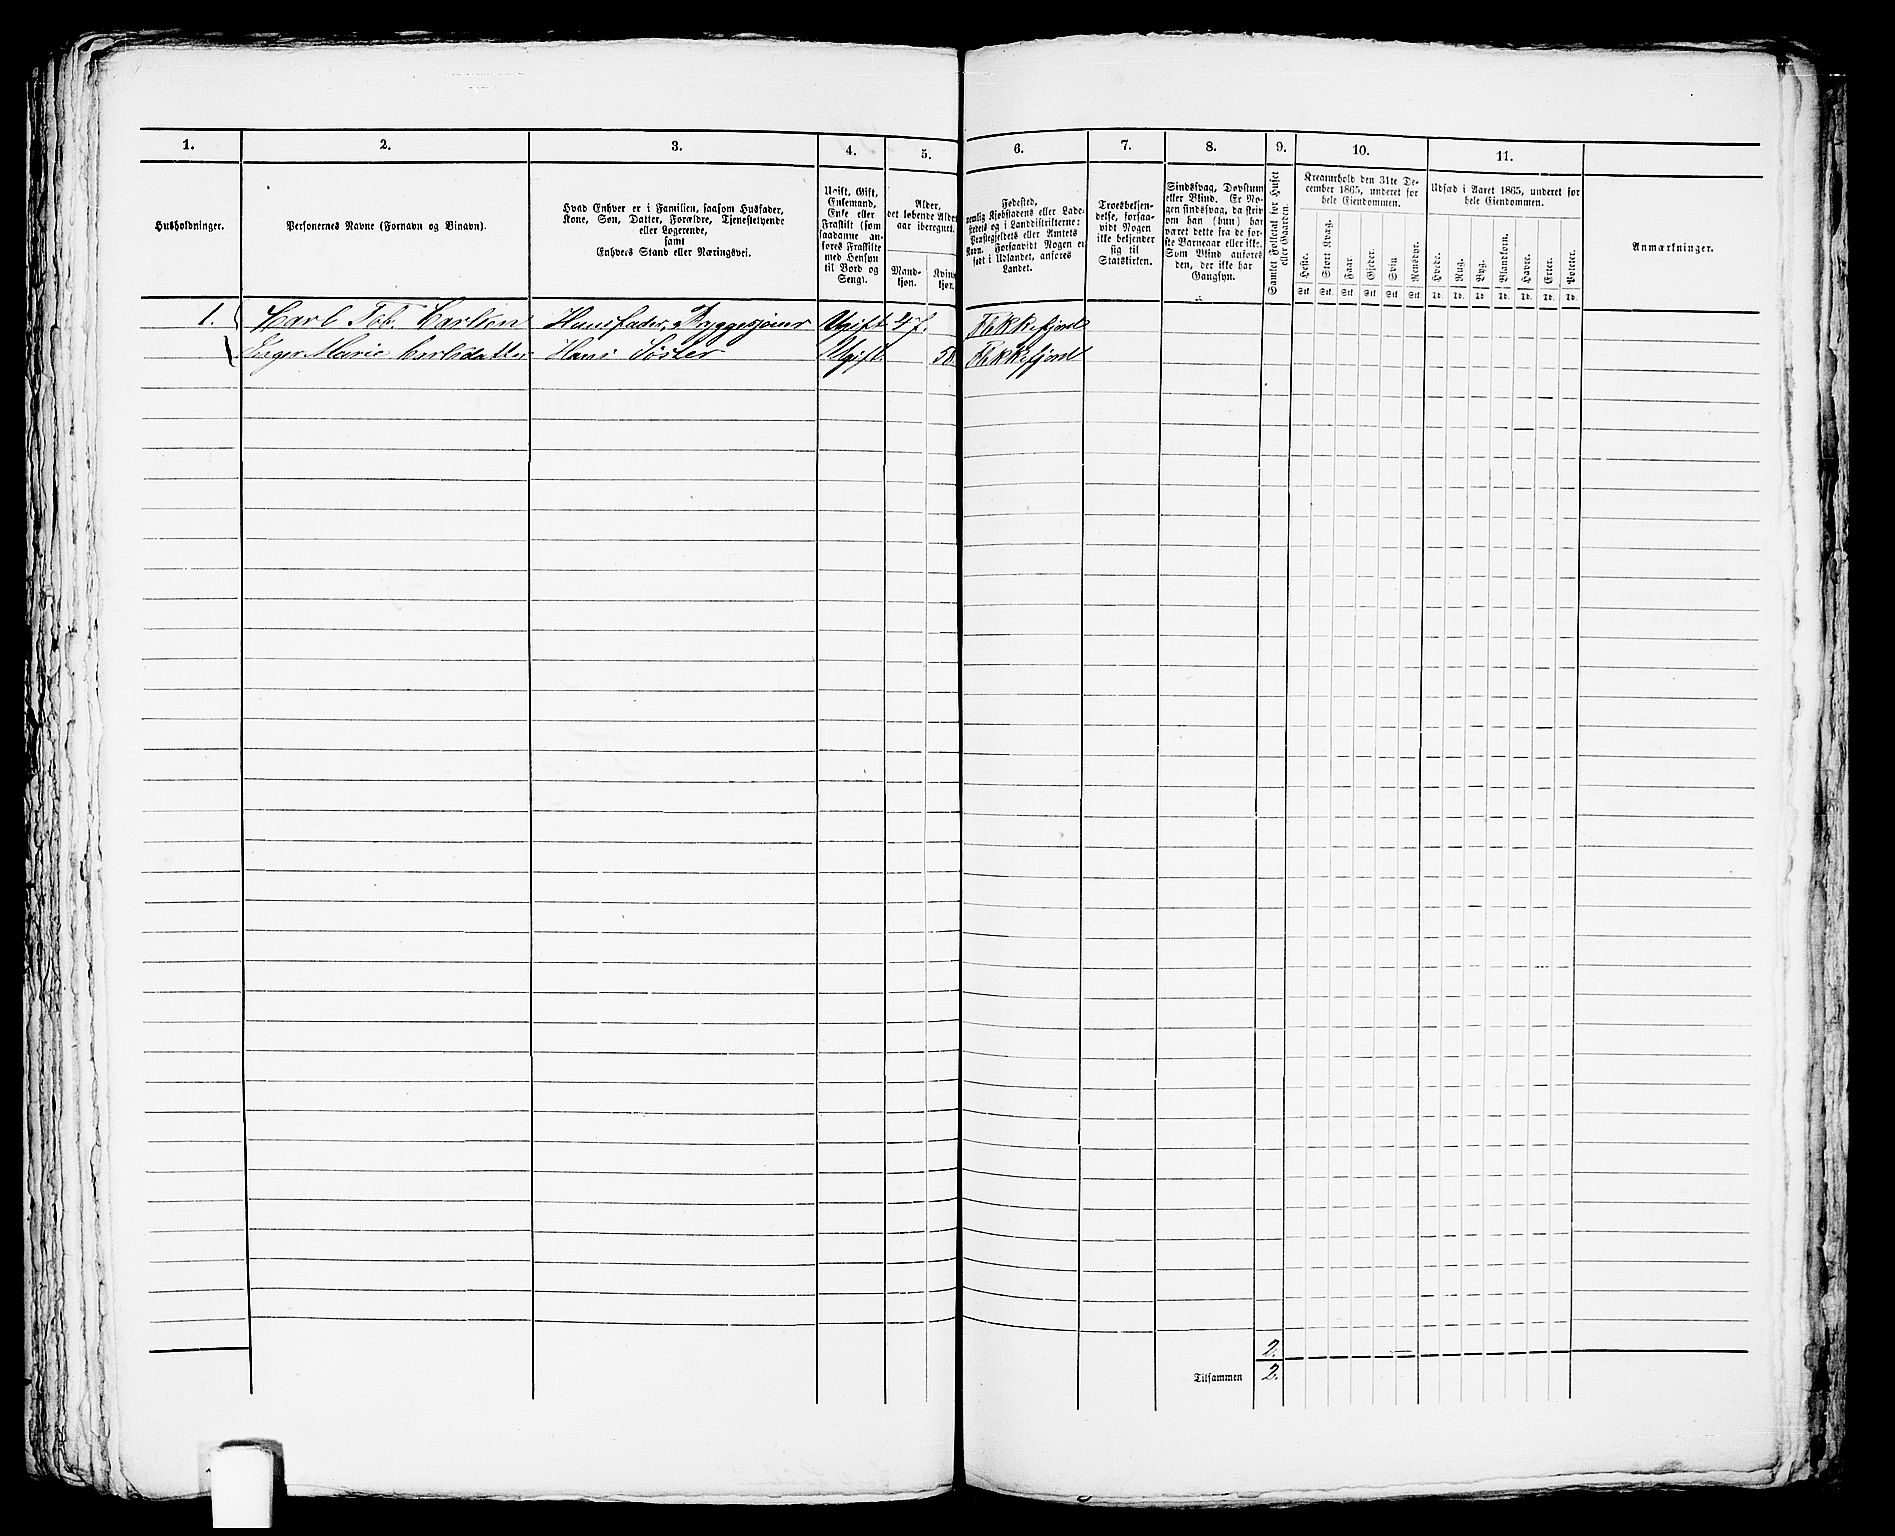 1. 2. 3. 4. 5. 6. 7. 8. 9. 10. 11.
Husholdninger.
Personernes Navne (Fornavn og Binavn).
Hvad Enhver er i Familien, saasom Husfader,
Kone, Søn, Datter, Forældre, Tjenestetyende
eller Logerende,
samt
Enhvers Stand eller Næringsvei.
Ugift, Gift,
Enkemand,
Enke eller
Fraskilt (som
saadanne an-
føres Fraskilte
med Hensyn
til Bord og
Seng).
Alder,
det løbende Alders-
aar iberegnet.
Mand-
kjøn.
Kvinde-
kjøn.
Fødested,
nemlig Kjøbstadens eller Lade-
stedets og i Landdistrikterne:
Præstegjeldets eller Amtets
Navn. Forsaavidt Nogen er
født i Udlandet, anføres
Landet.
Troesbekjen-
delse, forsaa-
vidt Nogen
ikke bekjender
sig til
Statskirken.
Sindssvag, Døvstum
eller Blind. Er No-
gen sindssvag, da skriv
om han (hun) har
været dette fra de før-
ste Barneaar eller ikke.
Som Blind anføres
den, der ikke har
Gangsyn.
Samlet Folketal for Huset
eller Gaarden.
Kreaturhold den 31te De-
cember 1865, underet for
hele Eiendommen.
Heste. Stort Kvæg. Faar. Gjeder. Svin. Rensdyr.
Stk. Stk. Stk. Stk. Stk. Stk.
Udsæd i Aaret 1865, underet for
hele Eiendommen.
Hvede. Rug. Byg. Blandkorn. Havre. Erter. Poteter.
Td. Td. Td. Td. Td. Td. Td.
Anmærkninger.
1. Carl Tob. Carlsen Huusfader, Ugift 47. Flekkefjord
Marie Carlsdatter Hans Søster Ugift Flekkefjord
2.
Tilsammen 2.